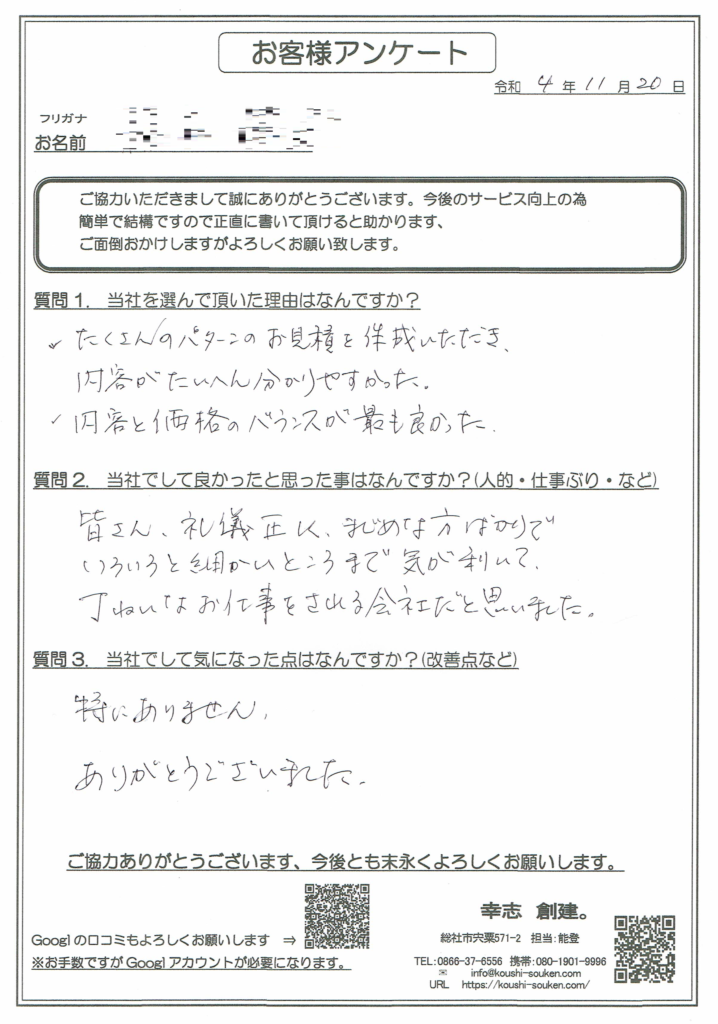 お客様アンケート
令和 4 年 11 月 20 日
フリガナ
お名前
ご協力いただきまして誠にありがとうございます。今後のサービス向上の為
簡単で結構ですので正直に書いて頂けると助かります、
ご面倒おかけしますがよろしくお願い致します。
質問1. 当社を選んで頂いた理由はなんですか？
✓ たくさんのパターンのお見積を作成いただき、
内容がたいへん分かりやすかった。
✓ 内容と価格のバランスが最も良かった。
質問2. 当社でして良かったと思った事はなんですか？(人的・仕事ぶり・など)
皆さん、礼儀正しく、まじめな方ばかりで
いろいろと細かいところまで気が利いて、
丁ねいなお仕事をされる会社だと思いました。
質問3. 当社でして気になった点はなんですか？(改善点など)
特にありません。
ありがとうございました。
ご協力ありがとうございます、今後とも末永くよろしくお願いします。
Googlの口コミもよろしくお願いします ⇒
※お手数ですがGooglアカウントが必要になります。
幸志 創建。
総社市宍粟571-2 担当:能登
TEL:0866-37-6556 携帯:080-1901-9996
✉ info@koushi-souken.com
URL https://koushi-souken.com/